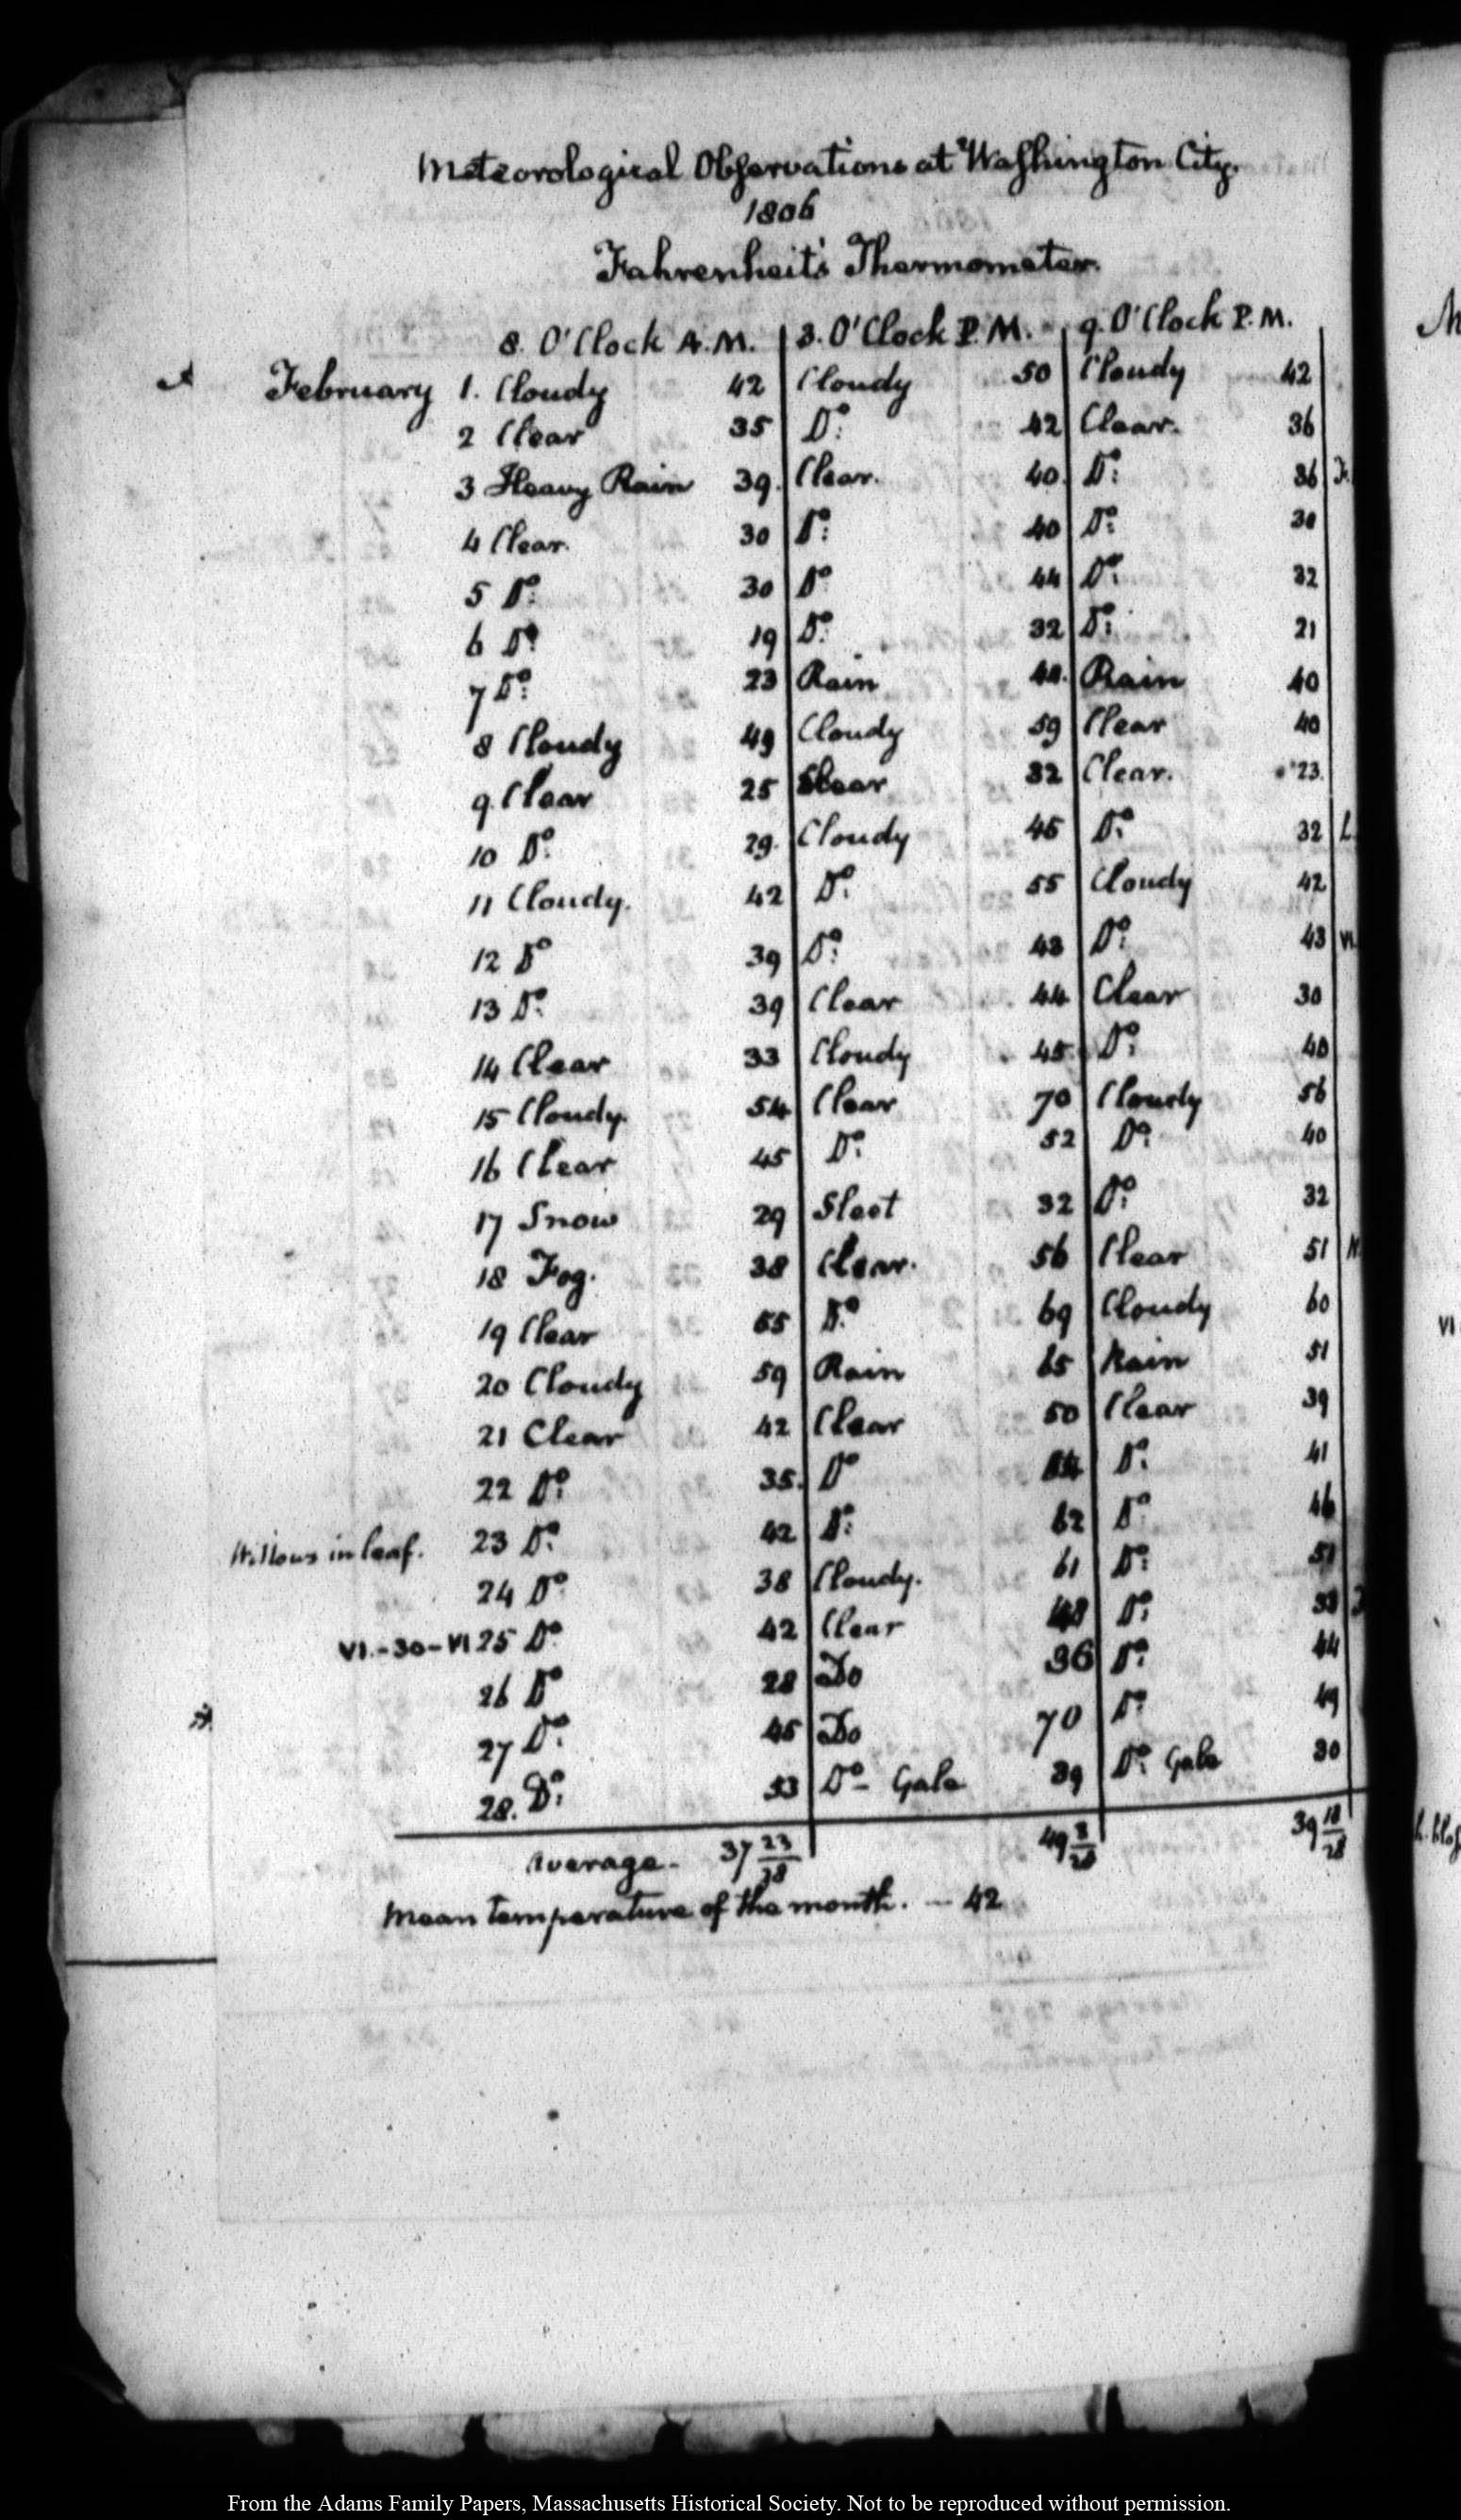 Meteorological Observations at Washington City.
1806
Fahrenheit's Thermometer.
8. O'Clock A.M. 3. O'Clock P.M. 9. O'Clock P.M.
February 1. Cloudy 42 Cloudy 50 Cloudy 42
2 Clear 35 Do: 42 Clear. 36
3 Heavy Rain 39. Clear. 40. Do: 36
4 Clear. 30 Do: 40 Do: 30
5 Do: 30 Do 44 Do: 32
6 Do: 19 Do: 32 Do: 21
7 Do: 23 Rain Rain 40
8 Cloudy 49 Cloudy 59 Clear 40
9. Clear 25 Clear 32 Clear. 23.
10 Do: 29. Cloudy 45 Do: 32
11 Cloudy. 42 Do: 55 Cloudy 42
12 Do 39 Do: 43 Do: 43 VI
13 Do: 39 Clear 44 Clear 30
14 Clear 33 Cloudy 45 Do: 40
15 Cloudy. 54 Clear 70 Cloudy 56
16 Clear 45 Do: 52 Do: 40
17 Snow 29 Sleet 32 Do: 32
18 Fog. 38 Clear. 56 Clear 51
19 Clear 55 Do: 69 Cloudy 60
20 Cloudy 59 Rain 65 Rain 51
21 Clear 42 Clear 50 Clear 39
22 Do: 35. Do Do: 41
Willows in leaf. 23 Do: 42 Do: 62 Do: 46
24 Do: 38 Cloudy. 61 Do: 51
VI.-30-VI 25 Do: 42 Clear 48 Do:
26 Do 28 Do 36 Do: 44
27 Do: 45 Do 70 Do: 49
28. Do: 33 Do- Gale 39 Do: Gale 30
Average. 37 23/28 49 3/28 39 18/28
Mean temperature of the month. - 42
From the Adams Family Papers, Massachusetts Historical Society. Not to be reproduced without permission.